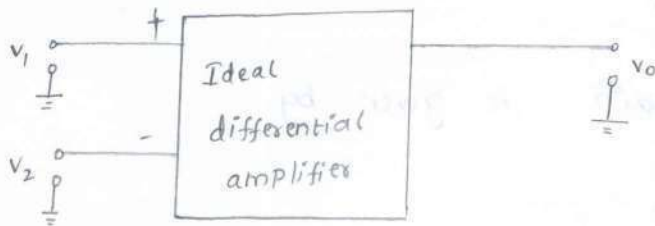 +
V1
Ideal
differential
amplifier
Vo
-
V2